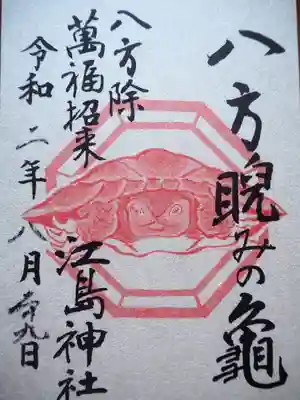 八方睨みの亀
江島神社
八方除
萬福招来
令和二年八月廿九日